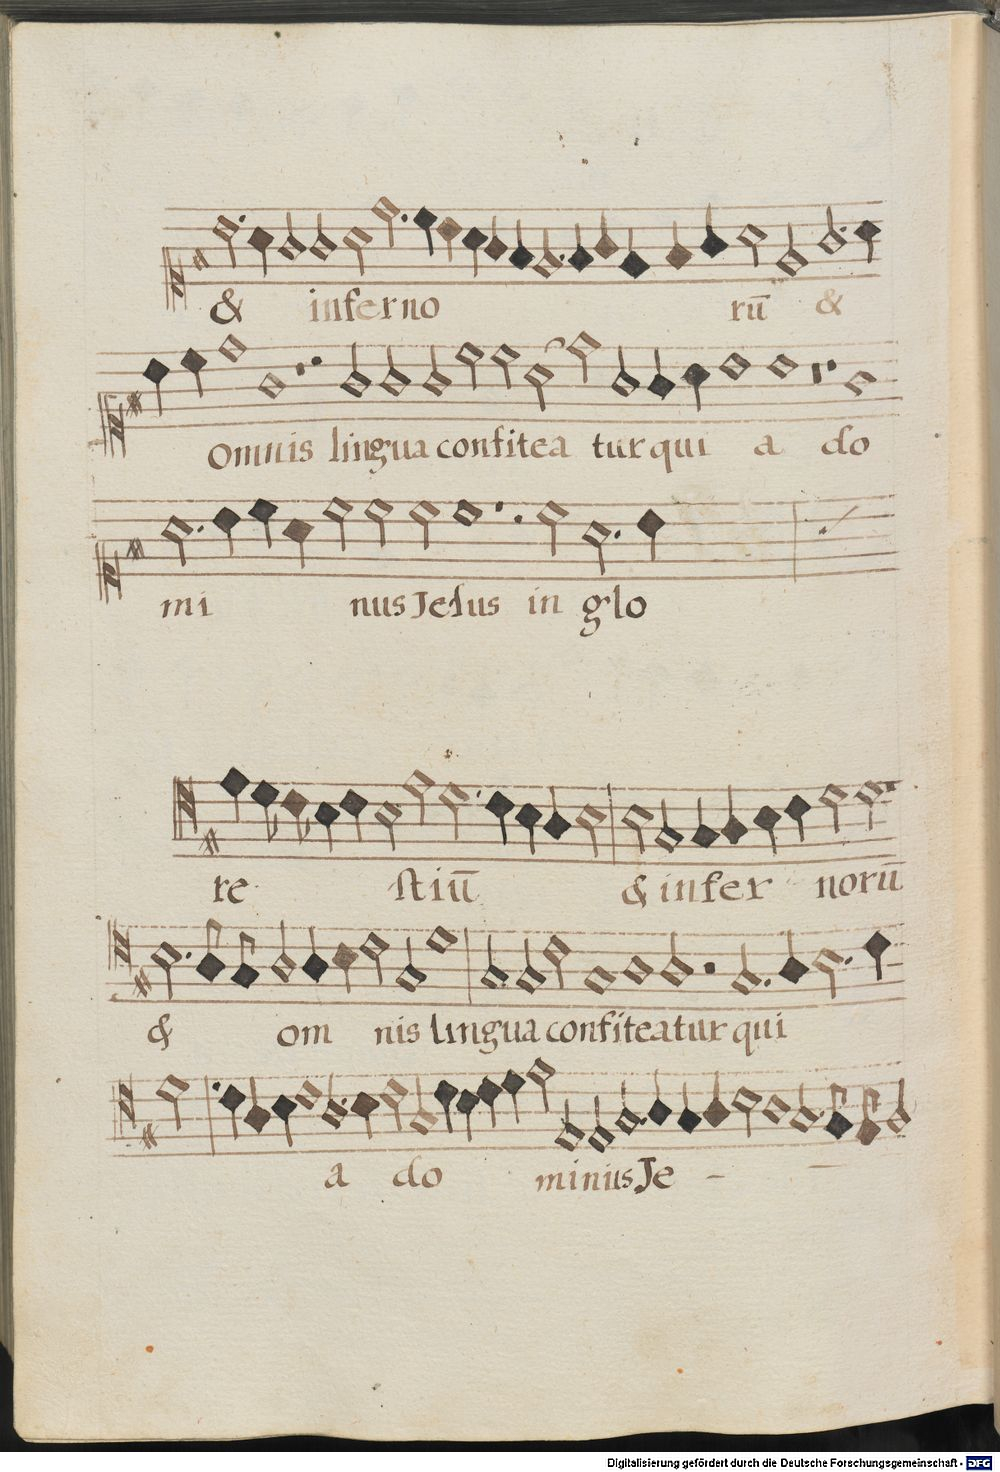 & inferno rū &
omnis lingua confitea tur qui a do
mi nus Jesus in glo
re stiū & infer norū
& om nis lingua confiteatur qui
a do minus Je - -
Digitalisierung gefördert durch die Deutsche Forschungsgemeinschaft - DFG